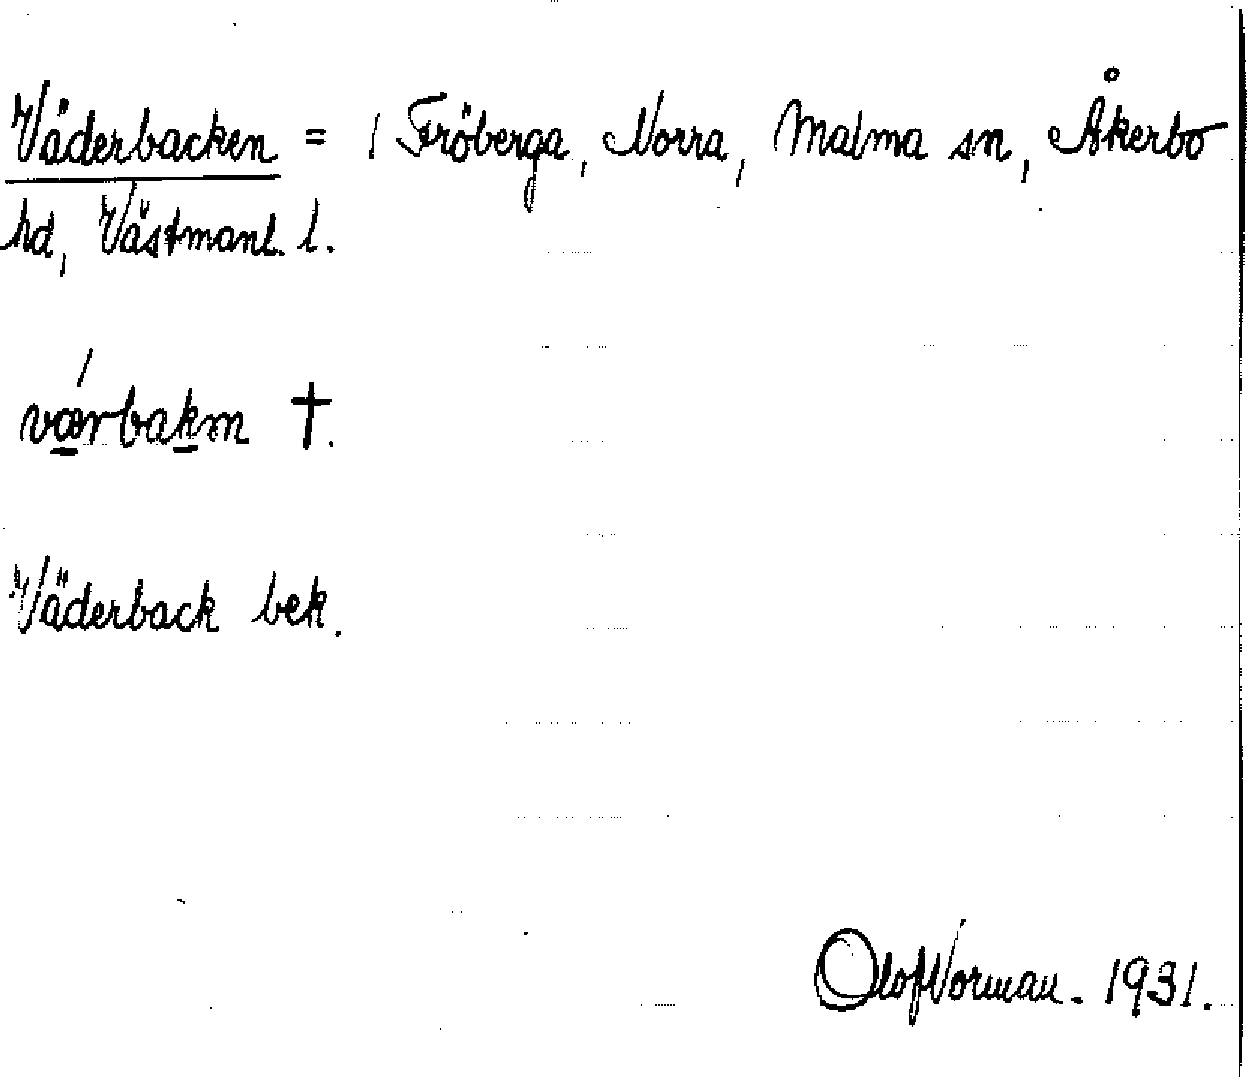 Väderbacken = 1 Fröberga, Norra, Malma sn, Åkerbo
hd, Västmanl. l.
værbakm †.
Väderback bek.
Olof Norman. 1931.